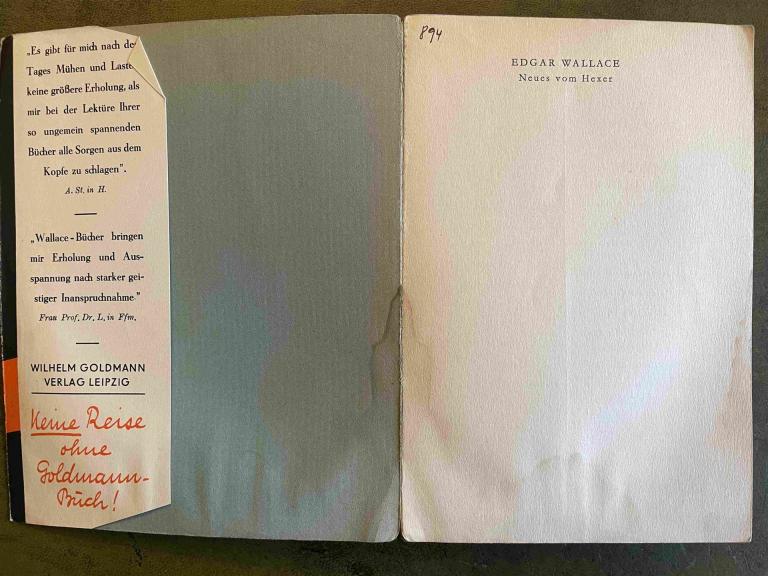 „Es gibt für mich nach des
Tages Mühen und Lasten
keine größere Erholung, als
mir bei der Lektüre Ihrer
so ungemein spannenden
Bücher alle Sorgen aus dem
Kopfe zu schlagen".
A. St. in H.
„Wallace-Bücher bringen
mir Erholung und Aus-
spannung nach starker gei-
stiger Inanspruchnahme"
Frau Prof. Dr. L. in Ffm.
WILHELM GOLDMANN
VERLAG LEIPZIG
Keine Reise
ohne
Goldmann-
Buch!
894
EDGAR WALLACE
Neues vom Hexer